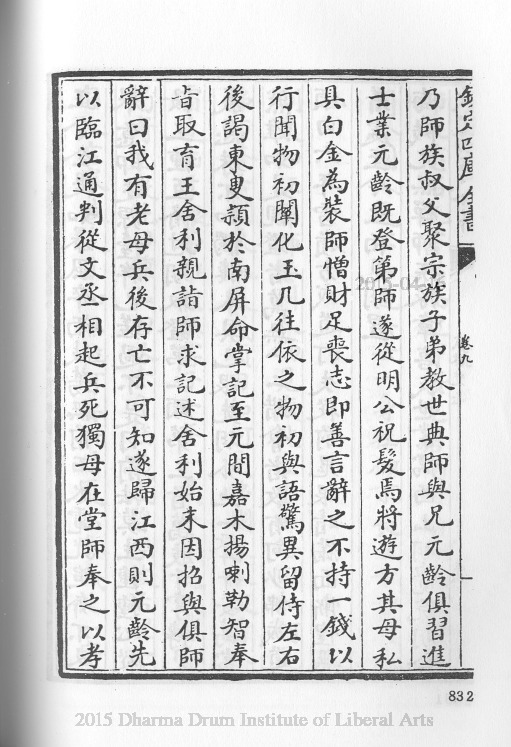 欽定四庫全書
卷九
乃師族叔父聚宗族子弟教世典師與兄元齡俱習進
士業元齡既登第師遂從明公祝髮焉將遊方其母私
具白金為裝師憎財足喪志即善言辭之不持一錢以
行聞物初闡化玉几往依之物初與語驚異留侍左右
後謁東叟頴於南屏命掌記至元間嘉木揚喇勒智奉
㫖取育王舍利親詣師求記述舍利始末因招與俱師
辭曰我有老母兵後存亡不可知遂歸江西則元齡先
以臨江通判從文丞相起兵死獨母在堂師奉之以孝
832
2015 Dharma Drum Institute of Liberal Arts